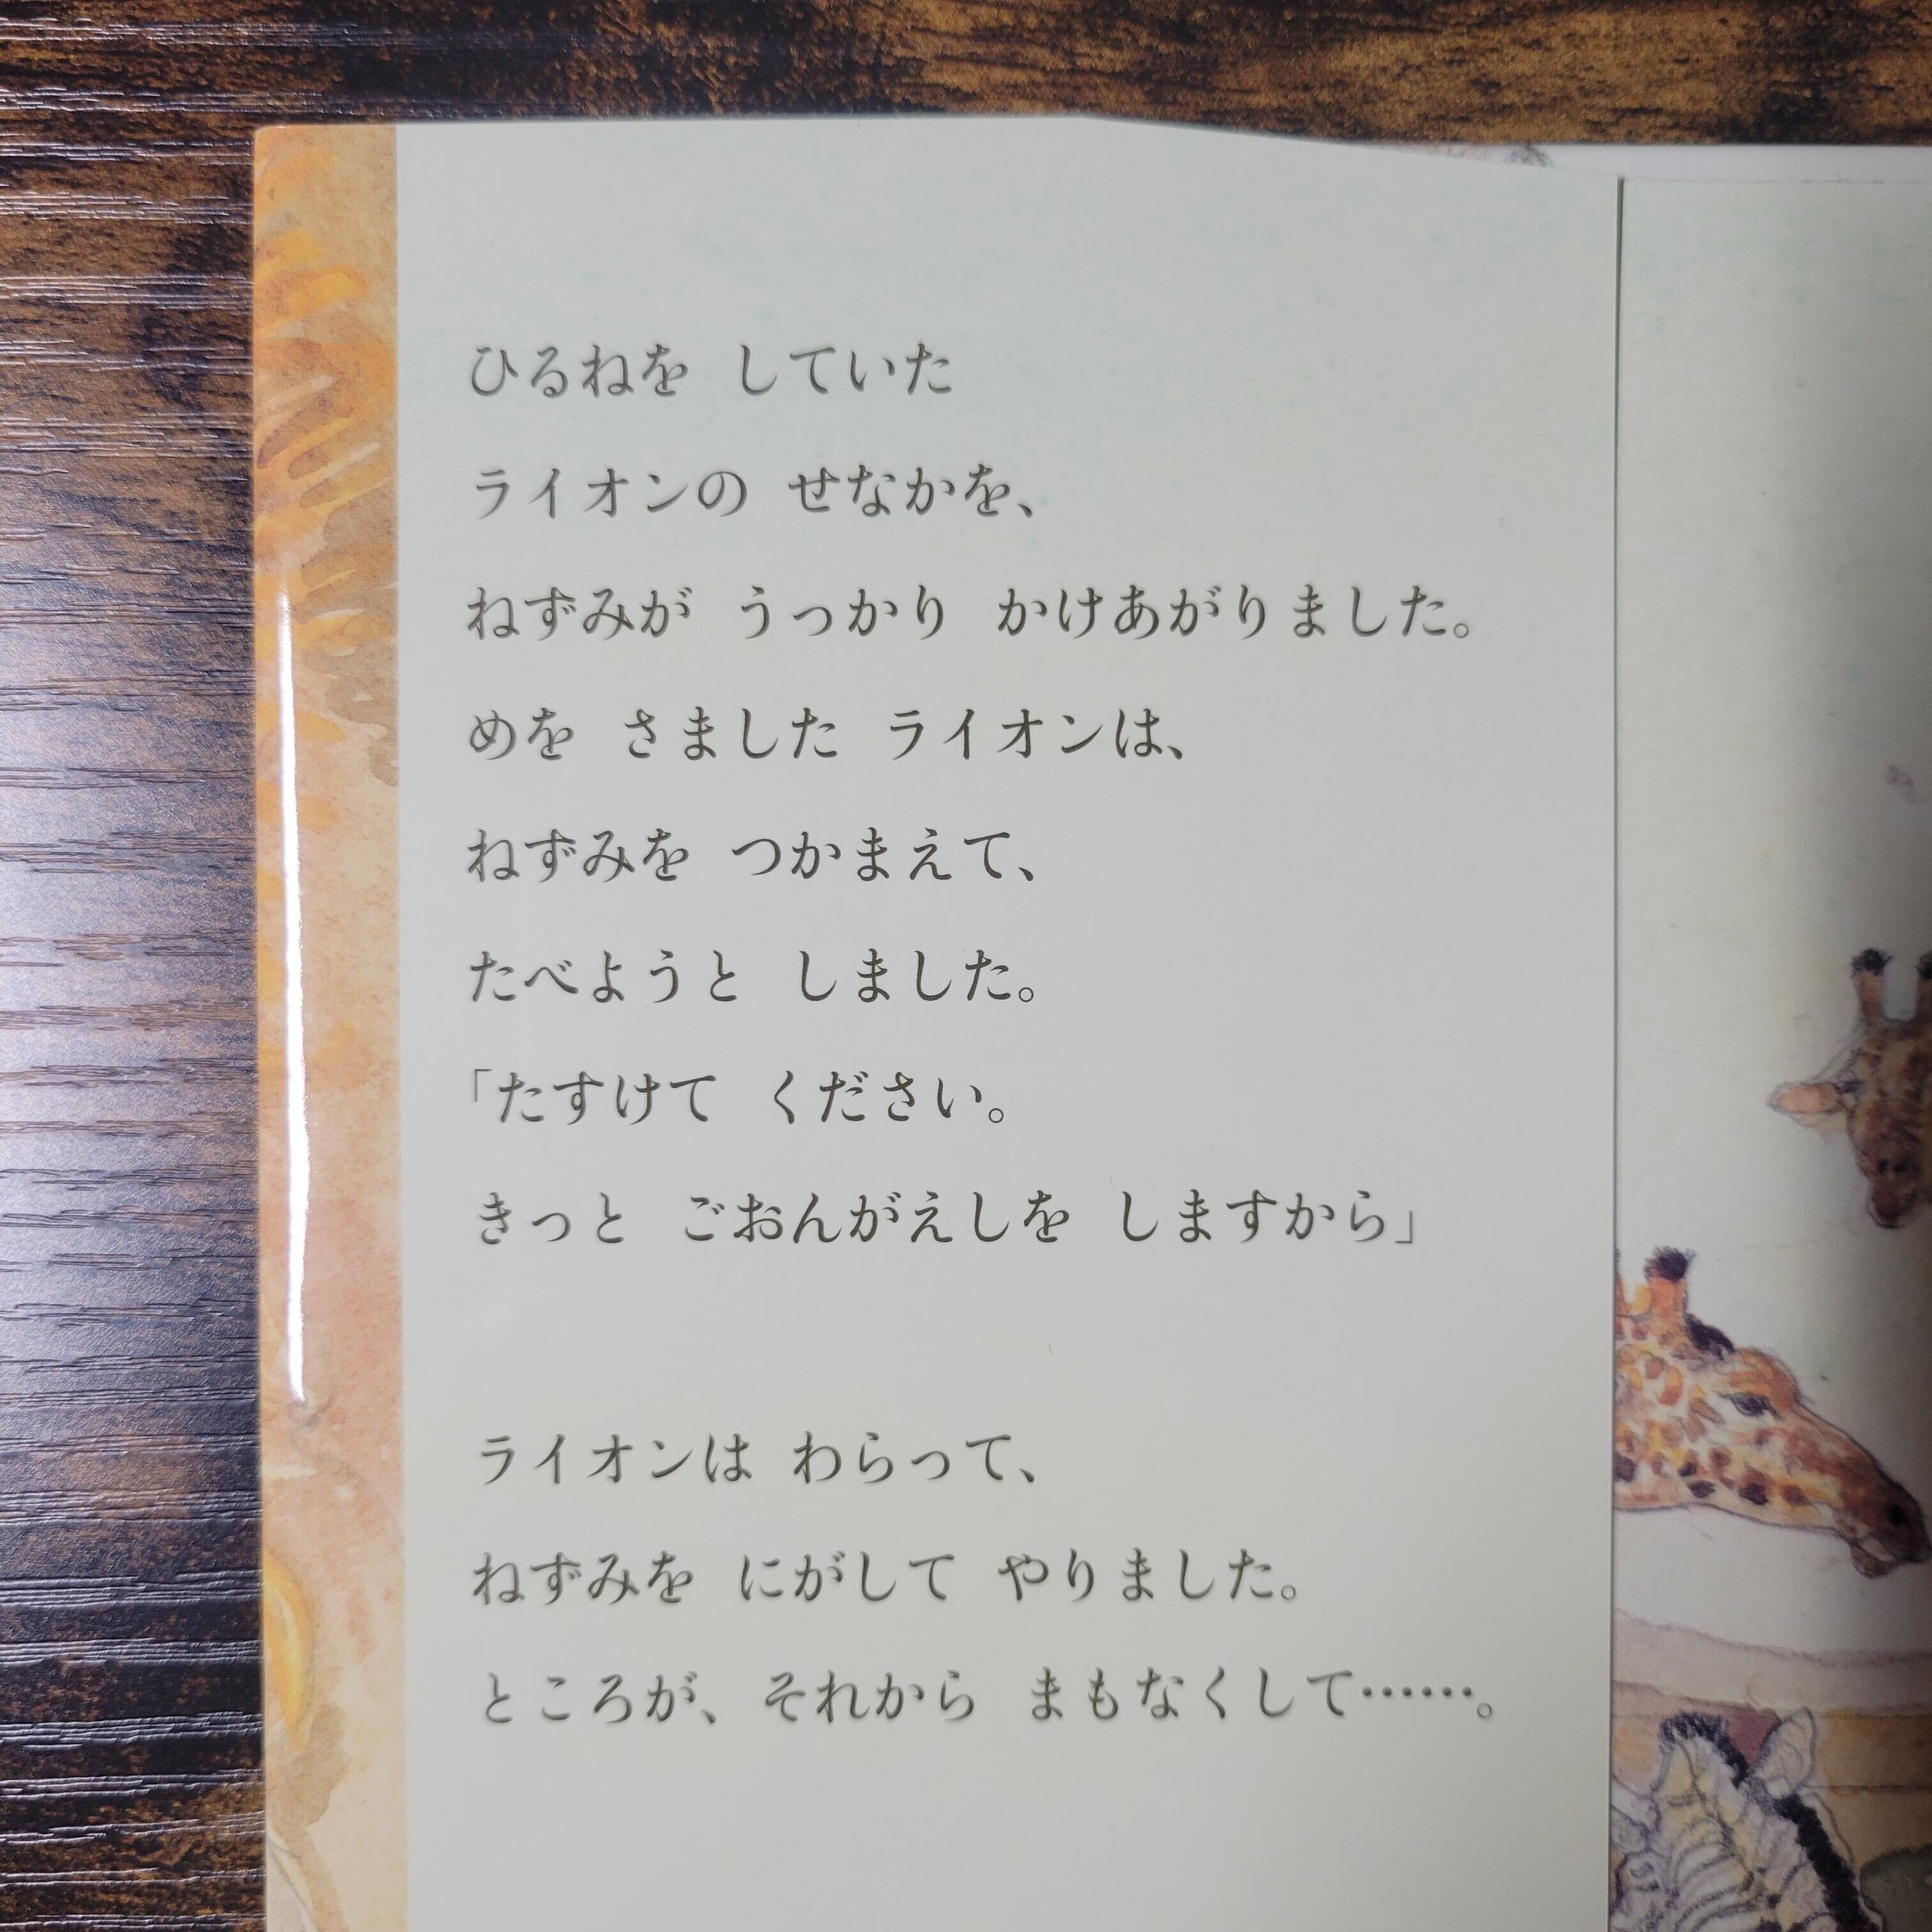 ひるねを していた
ライオンの せなかを、
ねずみが うっかり かけあがりました。
めを さました ライオンは、
ねずみを つかまえて、
たべようと しました。
「たすけて ください。
きっと ごおんがえしを しますから」
ライオンは わらって、
ねずみを にがして やりました。
ところが、それから まもなくして……。